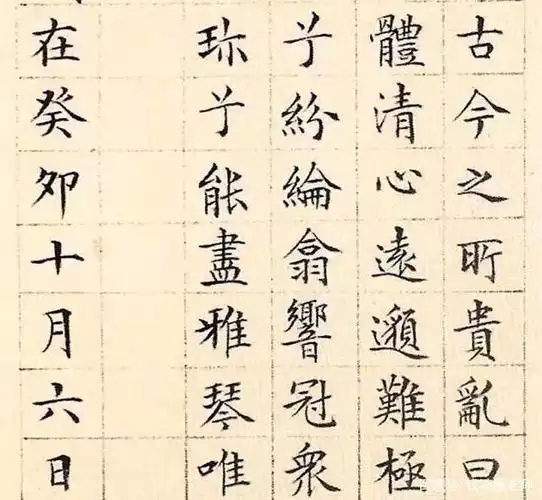 古今之所貴亂曰
體清心遠邈難極
兮紛綸翕響冠衆
珎兮能盡雅琴唯
在癸卯十月六日